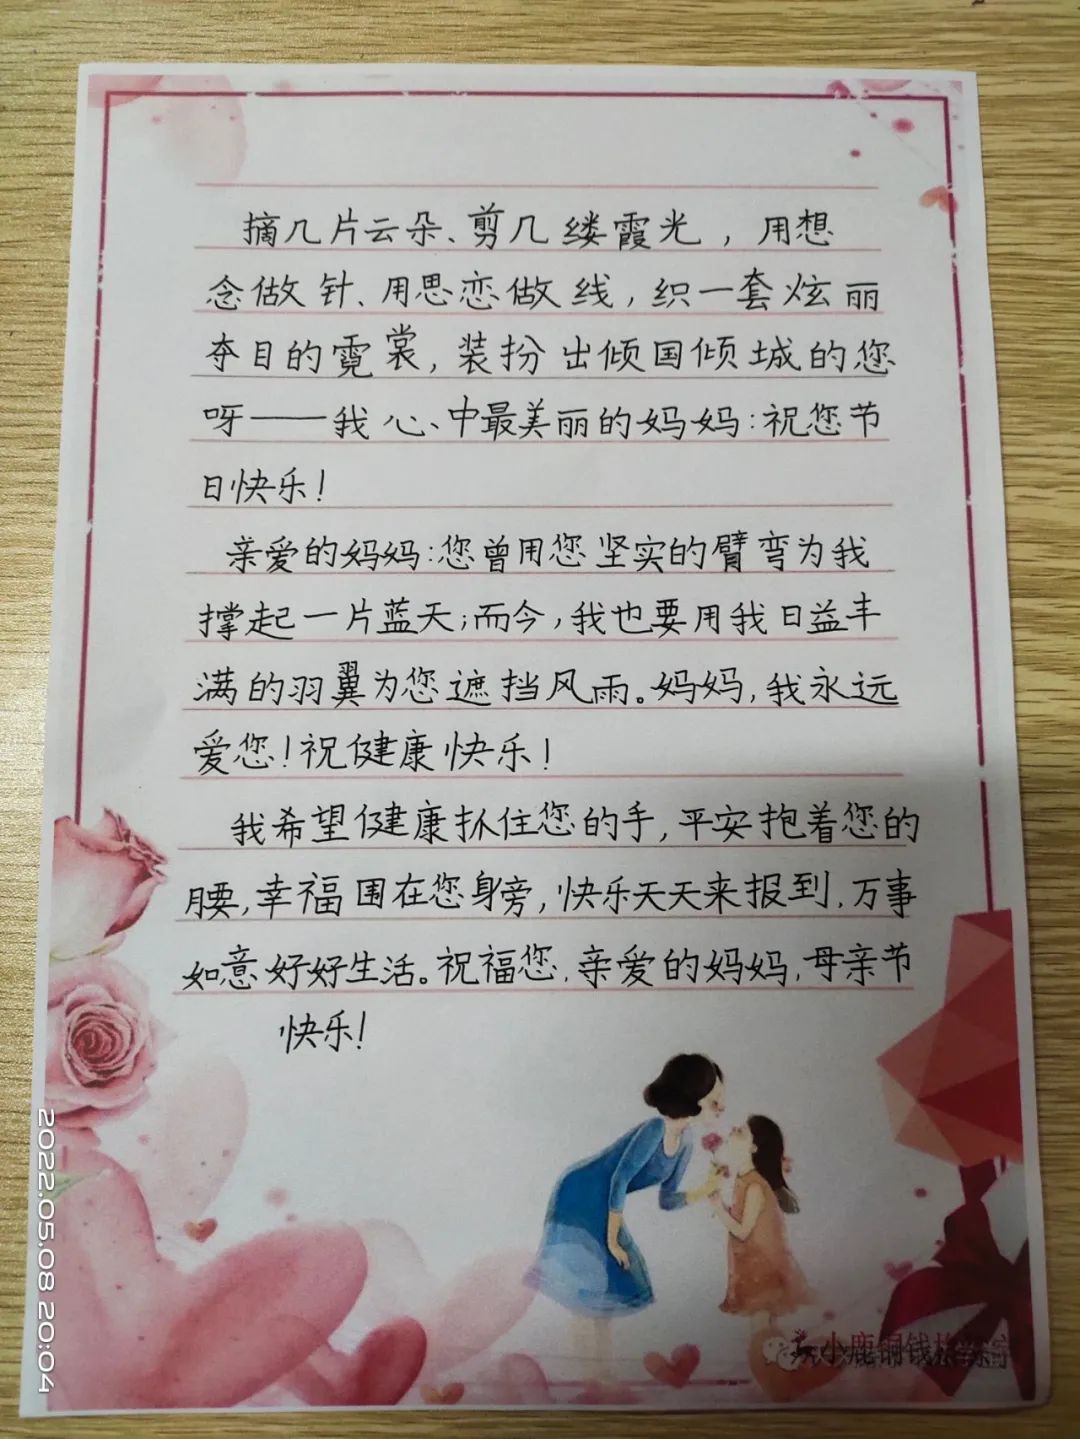 摘几片云朵、剪几缕霞光，用想
念做针、用思恋做线，织一套炫丽
夺目的霓裳，装扮出倾国倾城的您
呀——我心中最美丽的妈妈：祝您节
日快乐！
亲爱的妈妈：您曾用您坚实的臂弯为我
撑起一片蓝天；而今，我也要用我日益丰
满的羽翼为您遮挡风雨。妈妈，我永远
爱您！祝健康快乐！
我希望健康抓住您的手，平安抱着您的
腰，幸福围在您身旁，快乐天天来报到，万事
如意好好生活。祝福您，亲爱的妈妈，母亲节
快乐！
2022.05.08 20:04
小鹿铜钱